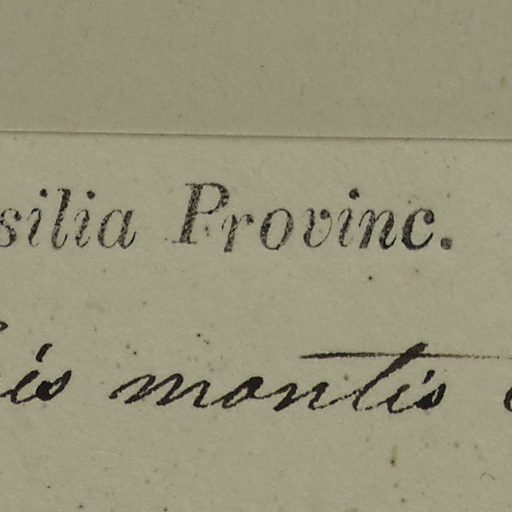 silia Provinc.
is montis